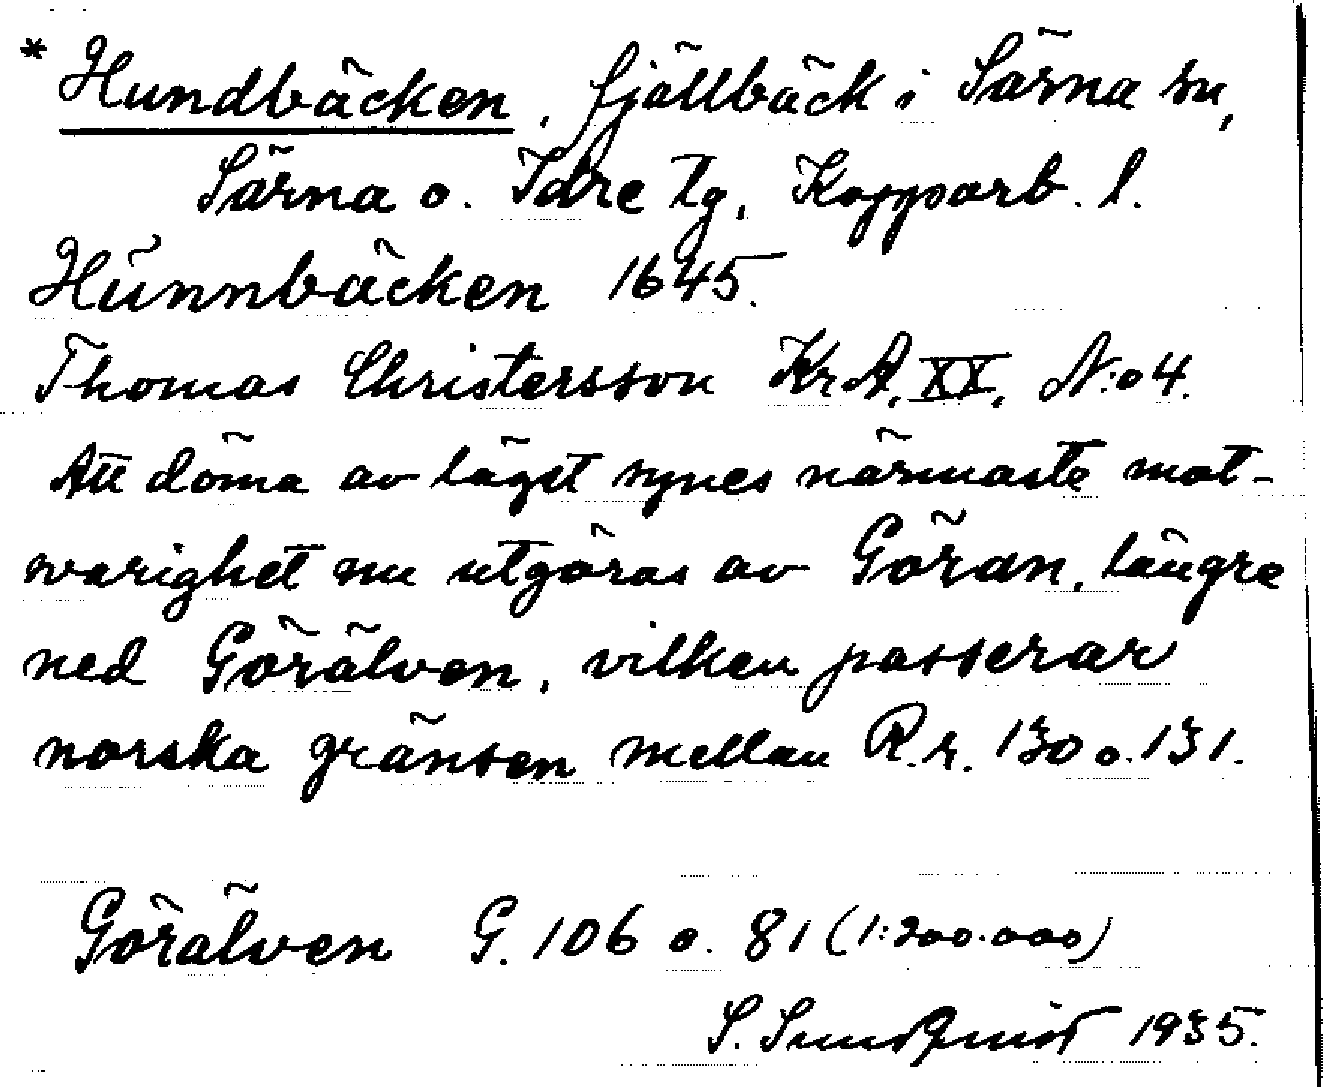 * Hundbäcken, fjällbäck i Särna sn,
Särna o. Idre tg, Kopparb. l.
Hünnbäcken 1645.
Thomas Christersson Kr.A. XX, N:o 4.
Att döma av läget synes närmaste mot-
svarighet nu utgöras av Göran, längre
ned Görälven, vilken passerar
norska gränsen mellan R.r. 130 o. 131.
Görälven G. 106 o. 81 (1:200.000)
S. Sundquist 1935.